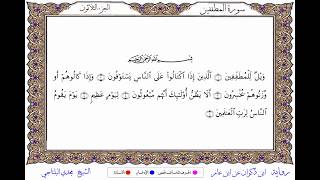 سورة المطففين
الجزء الثلاثون
بِسْمِ اللَّهِ الرَّحْمَٰنِ الرَّحِيمِ
وَيْلٌ لِّلْمُطَفِّفِينَ ۝ الَّذِينَ إِذَا اكْتَالُوا عَلَى النَّاسِ يَسْتَوْفُونَ ۝ وَإِذَا كَالُوهُمْ أَو
وَّزَنُوهُمْ يُخْسِرُونَ ۝ أَلَا يَظُنُّ أُولَٰئِكَ أَنَّهُم مَّبْعُوثُونَ ۝ لِيَوْمٍ عَظِيمٍ ۝ يَوْمَ يَقُومُ
النَّاسُ لِرَبِّ الْعَالَمِينَ ۝
رواية ابن ذكوان عن ابن عامر
الشيخ